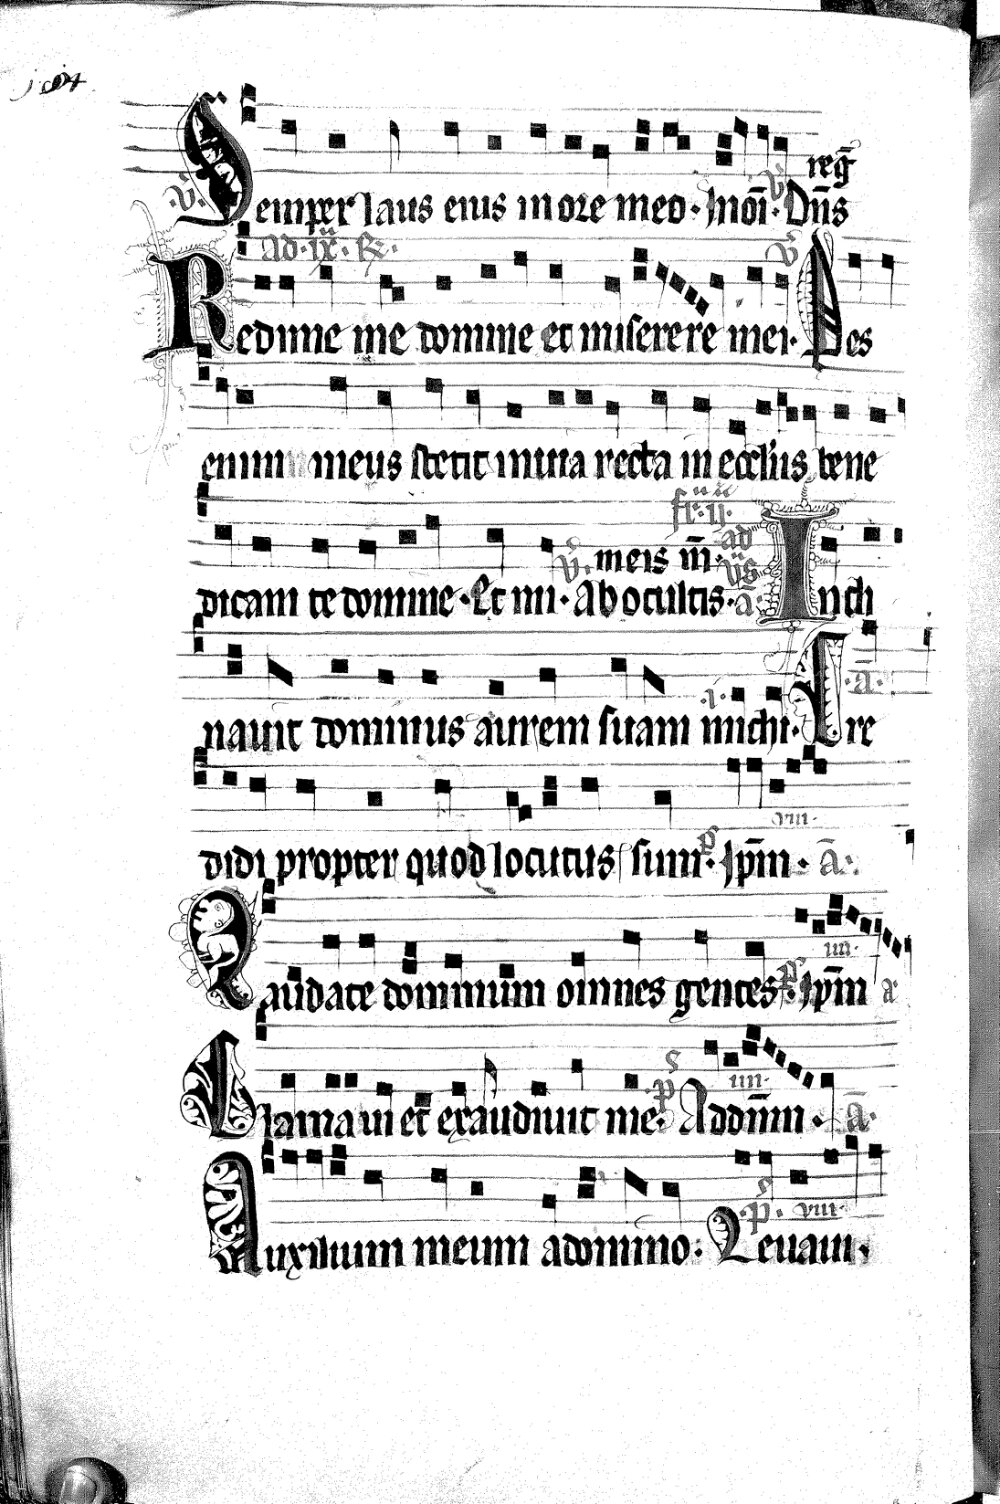 reg̃
.v̄. Semper laus eius in ore meo. In oı̄. Dn̄s
ad. ix. R̷.
Redime me domine et miserere mei. Pes
enim meus stetit in uia recta in eccl'iis bene
fr̄. ii.
meis m̄. ad
dicam te domine. Et mi. Ab ocultis. ā. Incli
nauit dominus aurem suam michi. Cre
didi propter quod locutus sum. p̄ Ip̄m. ā.
viii.
Laudate dominum omnes gentes. p̄s Ip̄m a
iiii.
Clamaui et exaudiuit me. p̄s Ad dn̄m. ā.
iiii.
Auxilium meum a domino. p̄s Leuaui.
viii.